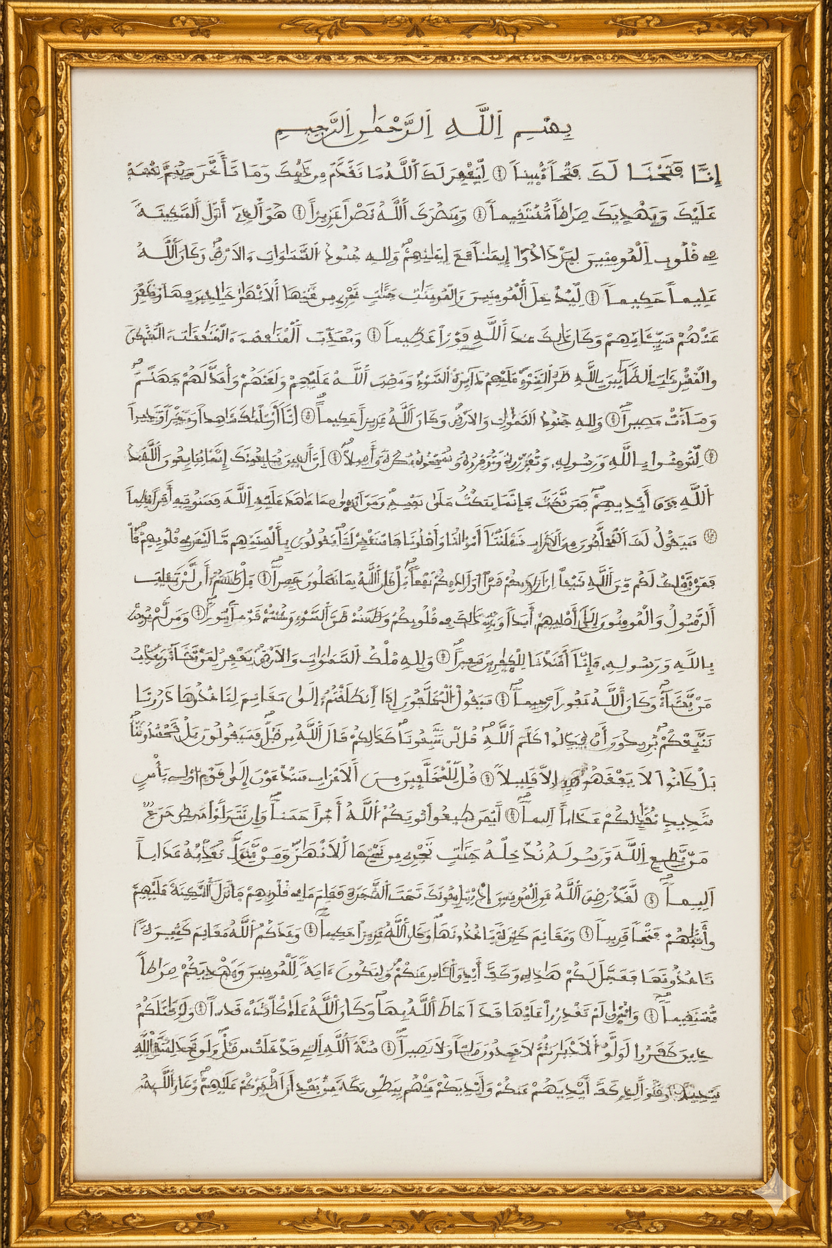 بسم الله الرحمن الرحيم
إنا فتحنا لك فتحا مبينا ليغفر لك الله ما تقدم من ذنبك وما تأخر ويتم نعمته
عليك ويهديك صراطا مستقيما وينصرك الله نصرا عزيزا هو الذي أنزل السكينة
في قلوب المومنين ليزدادوا إيمانا مع إيمانهم ولله جنود السماوات والارض وكان الله
عليما حكيما ليدخل المومنين والمومنات جنات تجري من تحتها الانهار خالدين فيها ويكفر
عنهم سيئاتهم وكان ذلك عند الله فوزا عظيما ويعذب المنافقين والمنافقات
الظانين بالله ظن السوء عليهم دائرة السوء وغضب الله عليهم ولعنهم وأعد لهم جهنم
وساءت مصيرا ولله جنود السماوات والارض وكان الله عزيزا حكيما إنا أرسلناك شاهدا ومبشرا ونذيرا
لتومنوا بالله ورسوله وتعزروه وتوقروه وتسبحوه بكرة وأصيلا إن الذين يبايعونك إنما يبايعون الله يد
الله فوق أيديهم فمن نكث فإنما ينكث على نفسه ومن أوفى بما عاهد عليه الله فسنوتيه أجرا عظيما
سيقول لك المخلفون من الاعراب شغلتنا أموالنا وأهلونا فاستغفر لنا يقولون بألسنتهم ما ليس في قلوبهم
فمن يملك لكم من الله شيئا إن أراد بكم ضرا أو أراد بكم نفعا بل كان الله بما تعملون خبيرا بل ظننتم أن لن ينقلب
الرسول والمومنون إلى أهليهم أبدا وزين ذلك في قلوبكم وظننتم ظن السوء وكنتم قوما بورا ومن لم يومن
بالله ورسوله فإنا أعتدنا للكافرين سعيرا ولله ملك السماوات والارض يغفر لمن يشاء ويعذب
من يشاء وكان الله غفورا رحيما سيقول المخلفون إذا انطلقتم إلى مغانم لتاخذوها ذرونا
نتبعكم يريدون أن يبدلوا كلم الله قل لن تتبعونا كذالكم قال الله من قبل فسيقولون بل تحسدوننا
بل كانوا لا يفقهون إلا قليلا قل للمخلفين من الاعراب ستدعون إلى قوم أولي بأس
شديد عذابا أليما تطيعوا يوتكم الله أجرا حسنا وإن تتولوا حرج
من يطع الله ورسوله ندخله جنات تجري من تحتها الانهار ومن يتول نعذبه عذابا
أليما لقد رضي الله عن المومنين إذ يبايعونك تحت الشجرة فعلم ما في قلوبهم فأنزل السكينة عليهم
وأثابهم فتحا قريبا ومغانم كثيرة ياخذونها وكان الله عزيزا حكيما وعدكم الله مغانم كثيرة
تاخذونها فعجل لكم هذه وكف أيدي الناس عنكم ولتكون ءاية للمومنين ويهديكم صراطا
مستقيما وأخرى لم تقدروا عليها قد أحاط الله بها وكان الله على كل شيء قديرا ولو قاتلكم
الذين كفروا لولوا الادبار ثم لا يجدون وليا ولا نصيرا سنة الله التي قد خلت من قبل ولن تجد لسنة الله
تبديلا وهو الذي كف أيديهم عنكم وأيديكم عنهم ببطن مكة من بعد أن أظفركم عليهم وكان الله